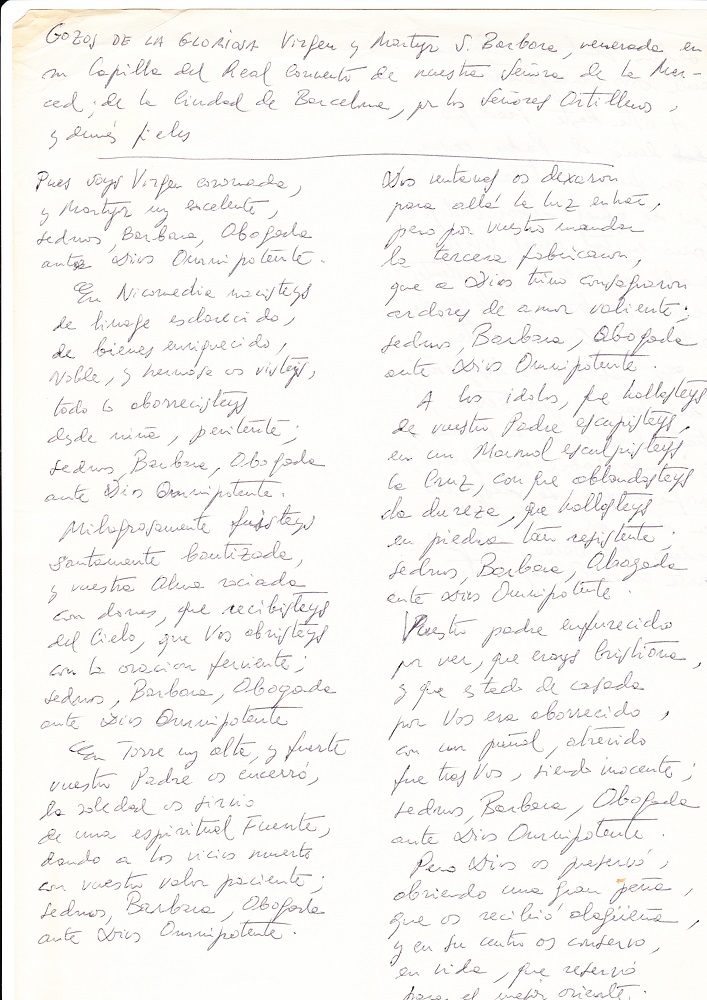 GOZOS DE LA GLORIOSA Virgen y Martyr S. Barbara, venerada en
su Capilla del Real Convento de nuestra Señora de la Mer-
ced, de la Ciudad de Barcelona, por los Señores Artilleros,
y demás fieles
Pues soys Virgen coronada,
y Martyr muy excelente,
sednos, Barbara, Abogada
ante Dios Omnipotente.
En Nicomedia nacisteys
de linage esclarecido,
de bienes enriquecido,
noble, y hermosa os visteys,
todo lo aborrecisteys
desde niña, penitente;
sednos, Barbara, Abogada
ante Dios Omnipotente.
Milagrosamente fuisteys
santamente bautizada,
y vuestra Alma rociada
con dones, que recibisteys
del Cielo, que Vos abristeys
con la oracion ferviente;
sednos, Barbara, Abogada
ante Dios Omnipotente
En Torre muy alta, y fuerte
vuestro Padre os encerró,
la soledad os sirvio
de una espiritual Fuente,
dando a los vicios muerte
con vuestro valor paciente;
sednos, Barbara, Abogada
ante Dios Omnipotente.
Dos ventanas os dexaron
para allá la luz entrar,
pero por vuestro mandar
la tercera fabricaron,
que a Dios trino consagraron
ardores de amor valiente;
sednos, Barbara, Abogada
ante Dios Omnipotente.
A los idolos, que hallasteys
de vuestro Padre escupisteys,
en un Marmol esculpisteys
la Cruz, con que ablandasteys
la dureza, que hallasteys
en piedra tan resistente;
sednos, Barbara, Abogada
ante Dios Omnipotente.
Vuestro padre enfurecido
por ver, que erays Cristiana,
y que estado de casada
por Vos era aborrecido,
con un puñal, atrevido
fue tras Vos, siendo inocente;
sednos, Barbara, Abogada
ante Dios Omnipotente.
Pero Dios os preservó,
abriendo una gran peña,
que os recibió alagüeña,
y en su centro os conservo,
en vida, que reservó
para el mejor oriente.